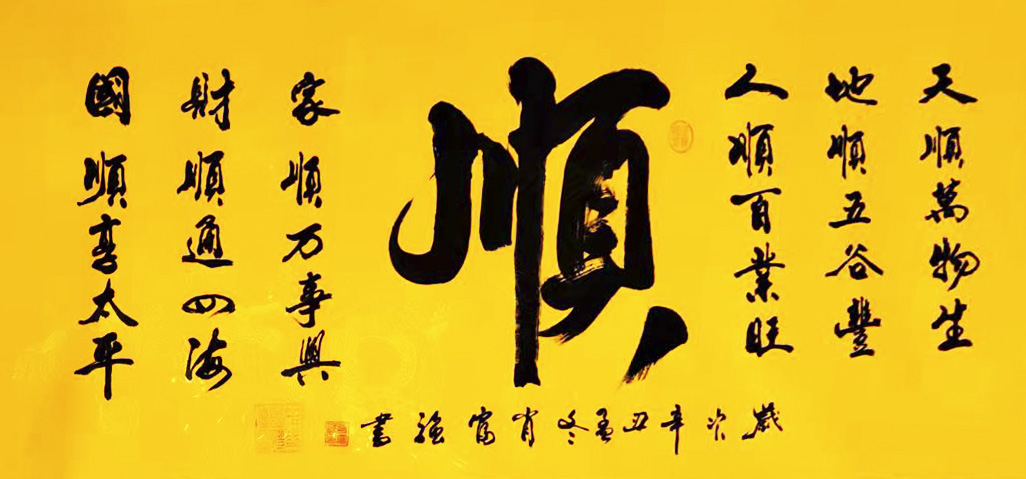 天順萬物生
地順五谷豐
人順百業旺
順
家順万事興
財順通四海
國順享太平
歲次辛丑孟冬肖富強書